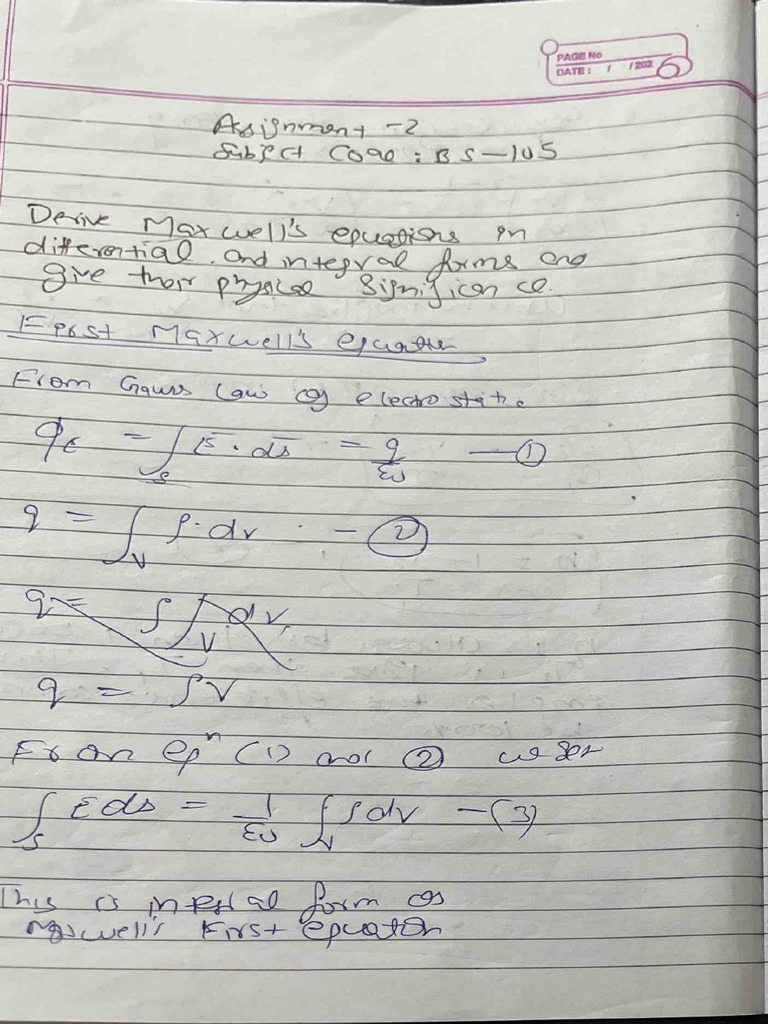 PAGE No
DATE: / /202
Assignment -2
Subject Code : BS-105
Derive Maxwell's equations in
differential and integral forms and
give their physical significance.
First Maxwell's equation
From Gauss Law of electrostatic
φE = ∫s E̅ . ds̅ = q/ε0 — ①
q = ∫v ρ. dv - ②
q = ρ∫v dv
q = ρV
From eqn (1) and ② we get
∫s E ds = 1/ε0 ∫v ρdv - (3)
This is integral form of
Maxwell's First equation